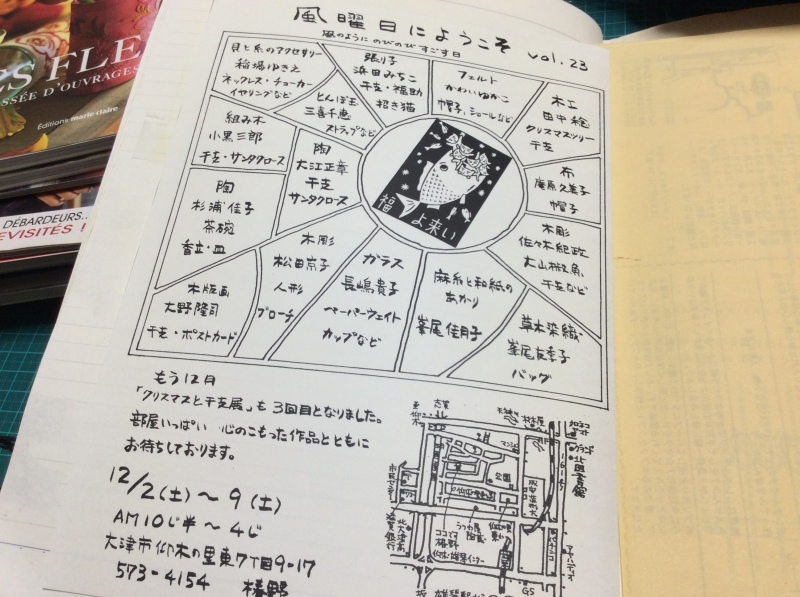 風曜日にようこそ vol.23
風のように のびのび すごす日
貝と糸のアクセサリー
稲場ゆきえ
ネックレス・チョーカー
イヤリングなど
張り子
浜田みちこ
干支・福助
招き猫
フェルト
かわいゆかこ
帽子、ショールなど
木工
田中 稔
クリスマスツリー
干支
とんぼ玉
三喜千恵
ストラップなど
組み木
小黒三郎
干支・サンタクロース
陶
大江正章
干支
サンタクロース
布
庵原久美子
帽子
福よ来い
陶
杉浦佳子
茶碗
香立・皿
木彫
佐々木紀政
大山椒魚
干支など
木彫
松田京子
人形
ブローチ
ガラス
長嶋貴子
ペーパーウェイト
カップなど
麻糸と和紙の
あかり
峯尾佳月子
草木染織
峯尾友季子
バッグ
木版画
大野隆司
干支・ポストカード
もう12月
「クリスマスと干支展」も3回目となりました。
部屋いっぱい 心のこもった作品とともに
お待ちしております。
12/2(土)〜9(土)
AM10じ半〜4じ
大津市仰木の里東7丁目9-17
573-4154 椿野
志賀
公園
ココです
椿野
北大津高
滋賀銀行
GS
161号
Éditions marie claire
SSÉE D'OUVRAGES
DÉBARDEURS...
EVISITÉS !